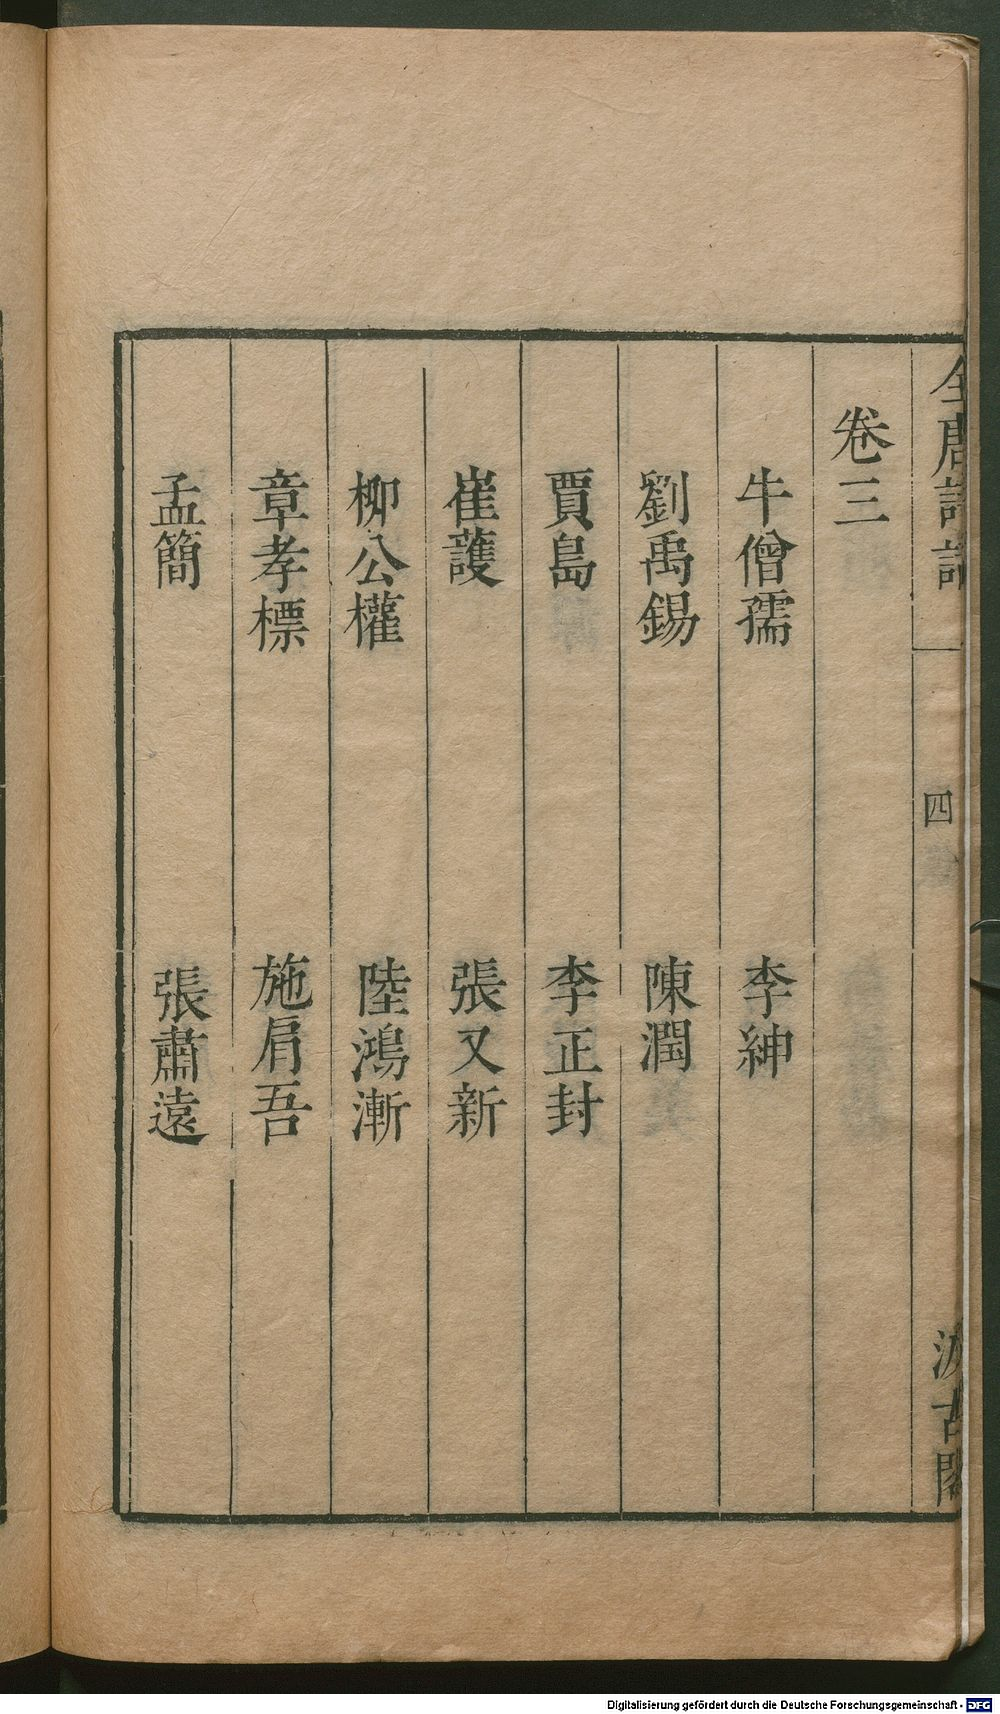 全唐詩話 四 汲古閣
卷三
牛僧孺 李紳
劉禹錫 陳潤
賈島 李正封
崔護 張又新
柳公權 陸鴻漸
章孝標 施肩吾
孟簡 張蕭遠
Digitalisierung gefördert durch die Deutsche Forschungsgemeinschaft - DFG